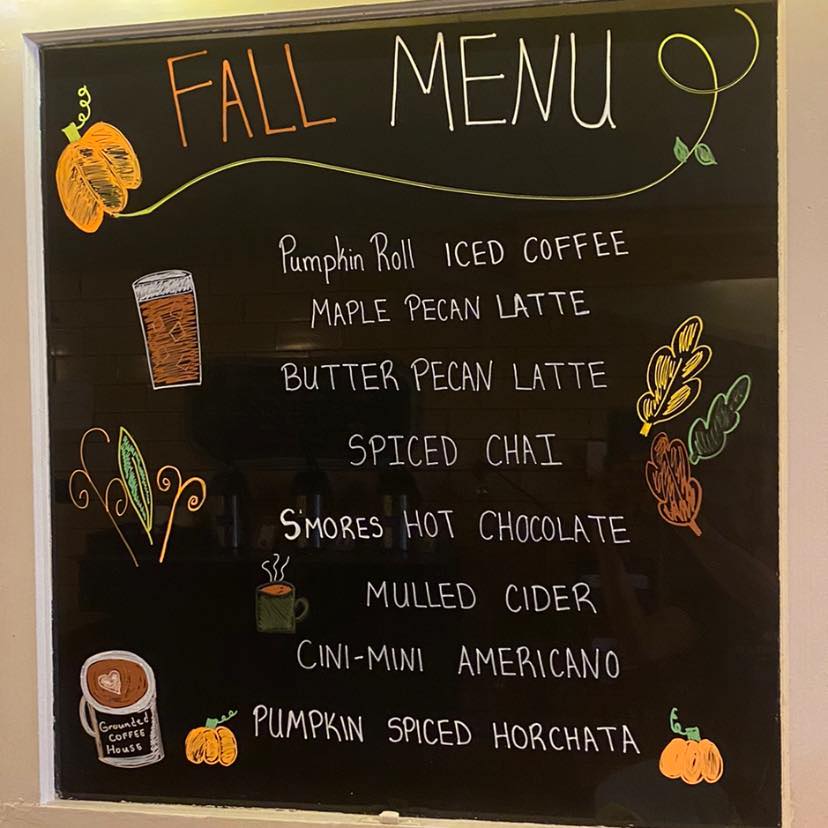 FALL MENU
Pumpkin Roll ICED COFFEE
MAPLE PECAN LATTE
BUTTER PECAN LATTE
SPICED CHAI
S'MORES HOT CHOCOLATE
MULLED CIDER
CINI-MINI AMERICANO
PUMPKIN SPICED HORCHATA
Grounded
COFFEE
House